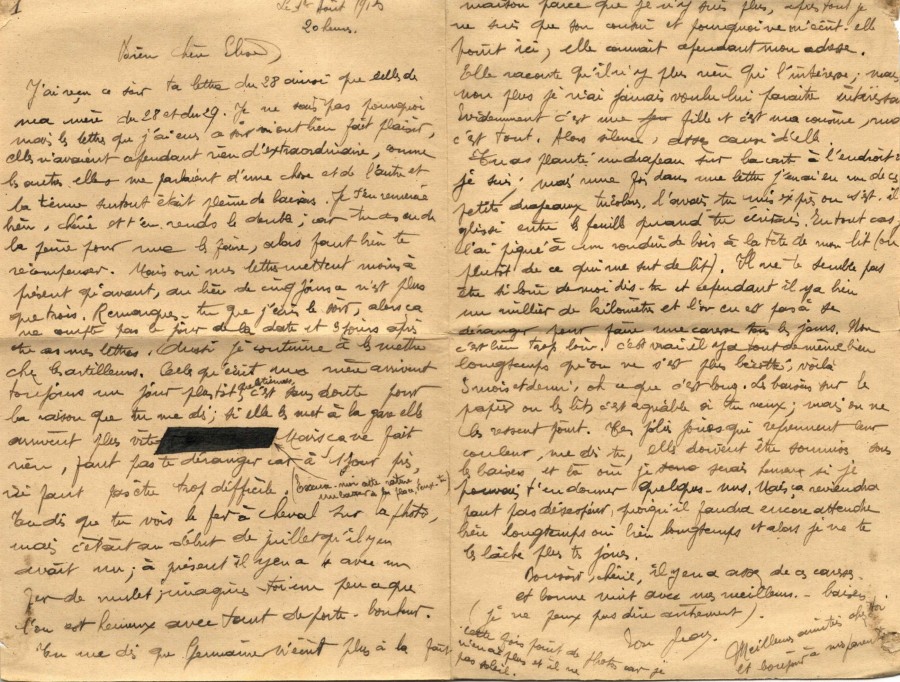 1
Le 1er Août 1915
20 heures.
Bien chère Elise
J'ai reçu ce soir ta lettre du 28 ainsi que celles de
ma mère du 28 et du 29. Je ne sais pas pourquoi
mais les lettres que j'ai eues ce soir m'ont bien fait plaisir,
elles n'avaient cependant rien d'extraordinaire, comme
les autres elles me parlaient d'une chose et de l'autre et
la tienne surtout était pleine de baisers. Je t'en remercie
bien, chérie et t'en rends le double; car tu as eu de
la peine pour me les faire, alors faut bien te
récompenser. Mais oui mes lettres mettent moins à
présent qu'avant, au lieu de cinq jours ce n'est plus
que trois. Remarques-tu que j'écris le soir, alors ça
ne compte pas le jour de la date et 3 jours après
tu as mes lettres. Aussi je continue à les mettre
chez les artilleurs. Celles qu'écrit ma mère arrivent
toujours un jour plus tôt que les tiennes, c'est sans doute pour
la raison que tu me dis; si elle les met à la gare elles
arrivent plus vite Mais ça ne fait
rien, faut pas te déranger car à 1 jour près,
né faut pas être trop difficile. (
Tu dis que tu vois le fer à cheval sur la photo,
mais c'était au début de juillet qu'il y en
avait un; à présent il y en a 4 avec un
fer de mulet; imagine-toi un peu ce que
l'on est heureux avec tant de porte-bonheur.
Tu me dis que Germaine n'écrit plus à la
maison parce que je n'y suis plus, après tout je
ne suis que son cousin et pourquoi ne m'écrit-elle
point ici, elle connait cependant mon adresse.
Elle raconte qu'il n'y plus rien qui l'intéresse; mais
non plus je n'ai jamais voulu lui paraître
Evidemment c'est une fille et c'est ma cousine,
c'est tout. Alors silence, assez causé d'elle.
Tu as planté un drapeau sur la carte à l'endroit
je suis; mais une fois dans une lettre j'en ai eu un de ces
petits drapeaux tricolores, l'avais tu mis exprès ou s'est-il
glissé entre les feuilles quand tu écrivais. En tout cas,
l'ai piqué à un rondin de bois à la tête de mon lit (ou
plutôt de ce qui me sert de lit). Il ne te semble pas
être si loin de moi dis-tu et cependant il y a bien
un millier de kilomètres et l'on en est pas à se
déranger pour faire une causette tous les jours. Non
c'est bien trop loin. C'est vrai il y a tout de même bien
longtemps qu'on ne s'est plus bécotté, voilà
5 mois et demi, oh ce que c'est long. Les baisers sur le
papier on les lit c'est agréable si tu veux; mais on ne
les ressent point. Tes jolies joues qui reprennent leur
couleur, me dis tu, elles doivent être
les baisers et là où je serais heureux si je
pouvais t'en donner quelques-uns. Mais ça reviendra
faut pas désespérer, quoiqu'il faudra encore attendre
bien longtemps oui bien longtemps et alors je ne te
les lâche plus tes joues.
Bonsoir, chérie, il y en a assez de ces
et bonne nuit avec mes meilleurs baisers
(je ne peux pas dire autrement).
Ton Jean.
Cette fois point de photo car je
n'en ai plus et il ne
pas soleil.
Meilleures amitiés chez toi
et bonjour à mes parents